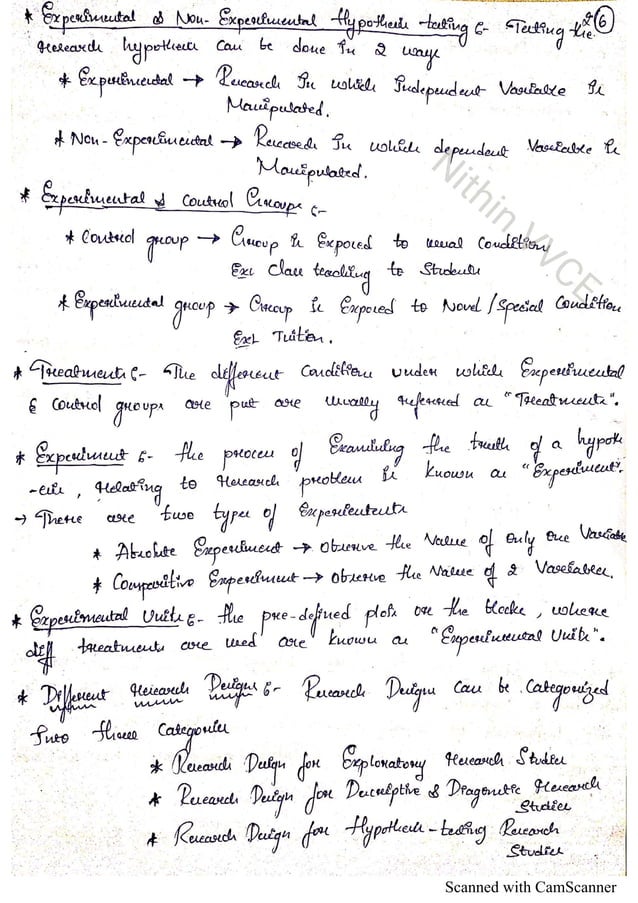 * Experimental & Non-Experimental Hypothesis testing :- Testing the 6
Research hypothesis can be done in 2 ways
* Experimental → Research in which Independent Variable is
Manipulated.
* Non-Experimental → Research in which dependent Variable is
Manipulated.
* Experimental & Control Groups :-
* Control group → Group is Exposed to usual Condition
Ex: Class teaching to Students
* Experimental group → Group is Exposed to Novel/Special Condition
Ex: Tuition.
* Treatments :- The different Conditions under which Experimental
& Control groups are put are usually referred as "Treatments".
* Experiment :- the process of Examining the truth of a hypoth
-esis, Relating to Research problem is known as "Experiment".
→ There are two types of
* Absolute Experiment → Observe the Value of Only One Variable
* Comparitive Experiment → Observe the Value of 2 Variables.
* Experimental Units :- the pre-defined plots or the blocks, where
diff treatments are used are known as "Experimental Units".
* Different Research Designs :- Research Design can be Categorized
Into three Categories
* Research Design for Exploratory Research Studies
* Research Design for Descriptive & Diagonstic Research
Studies
* Research Design for Hypothesis-testing Research
Studies
Nithin VVCE
Scanned with CamScanner